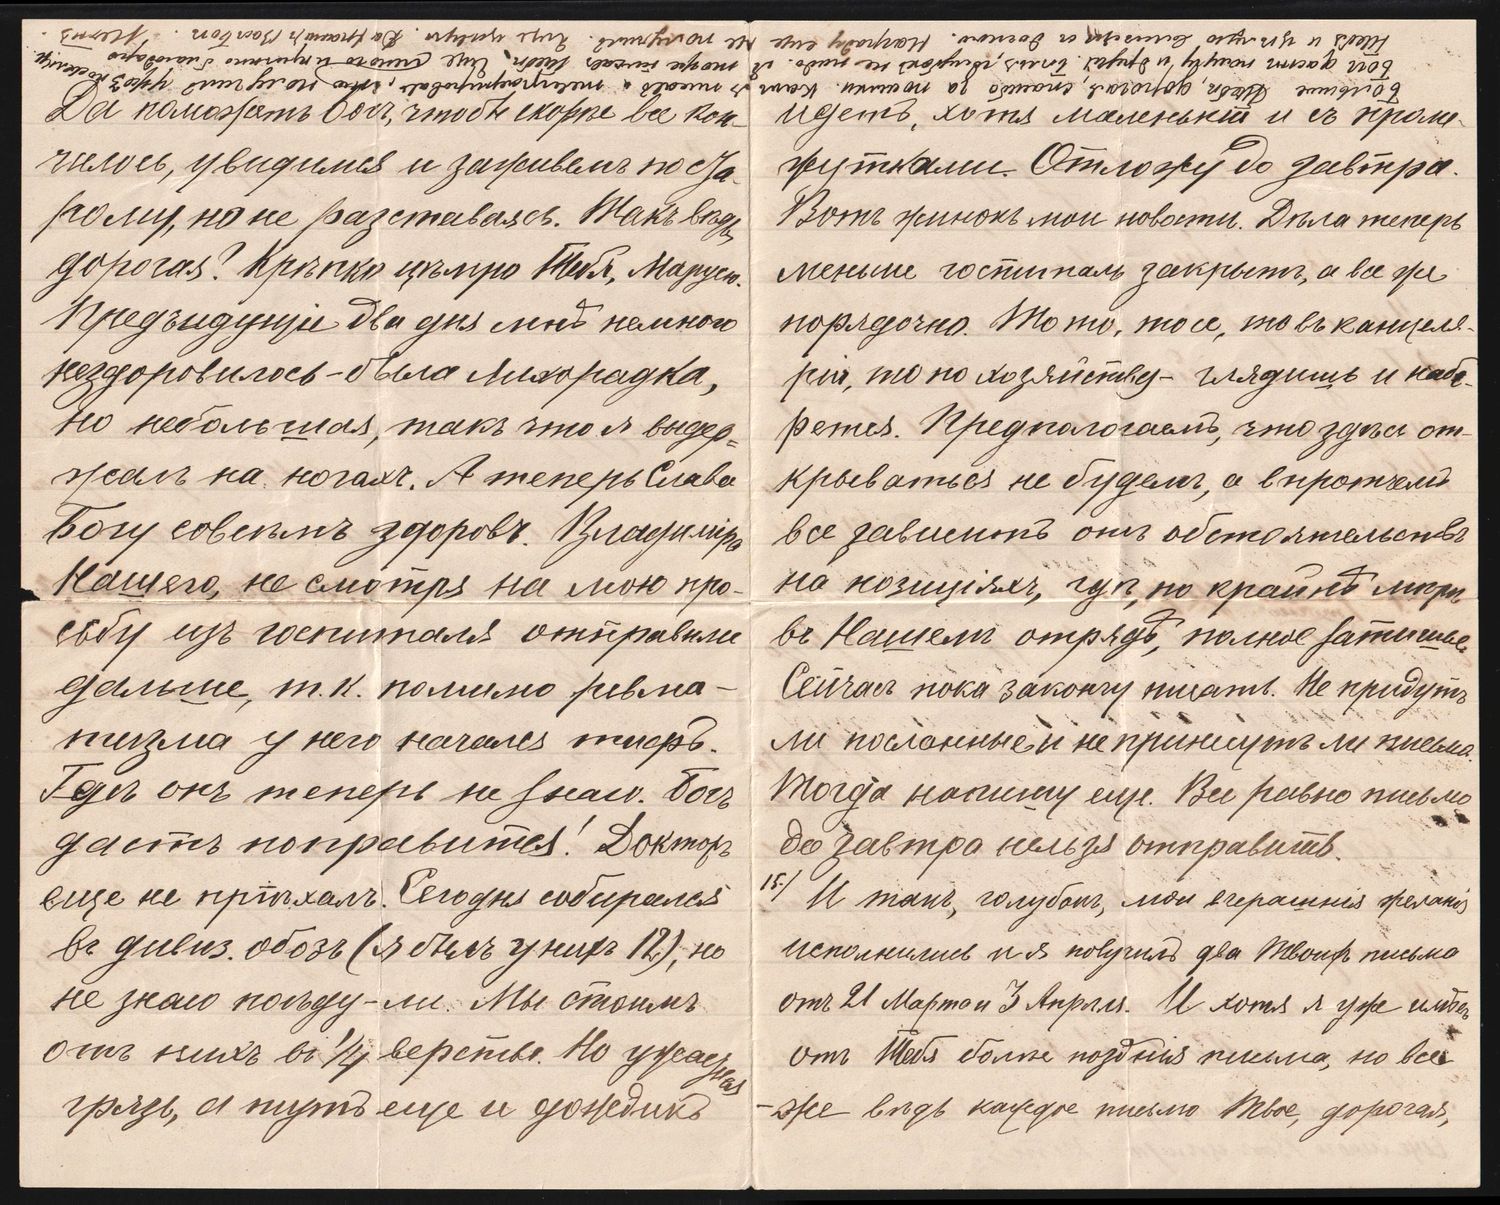 Да поможетъ Богъ, чтобы скорѣе все кон-
чилось, увидимся и заживемъ по ста-
рому, но не разставаясь. Такъ вѣдь
дорогая? Крѣпко цѣлую Тебя, Марусю.
Предъидущіе два дня мнѣ немного
нездоровилось – была лихорадка,
но небольшая, такъ что я выдер-
жалъ на ногахъ. А теперь Слава
Богу совсѣмъ здоровъ. Владиміра
Нашего, не смотря на мою про-
сьбу изъ госпиталя отправили
дальше, т.к. помимо ревма-
тизма у него начался тифъ.
Гдѣ онъ теперь не знаю. Богъ
дастъ поправится! Докторъ
еще не пріѣхалъ. Сегодня собирался
въ дивиз. обозъ (я былъ у нихъ 12), но
не знаю поѣду-ли. Мы стоимъ
отъ нихъ въ 1/4 верстѣ. Но ужасная
грязь, а тутъ еще и дождикъ
идетъ, хотя маленькій и съ проме-
жутками. Отложу до завтра.
Вотъ жинокъ мои новости. Дѣла теперь
меньше госпиталь закрытъ, а все же
порядочно. То то, то се, то въ канцеля-
ріи, то по хозяйству – глядишь и набе-
рется. Предпологаемъ, что здѣсь от-
крываться не будемъ, а впротчемъ
все зависитъ отъ обстоятельствъ
на позиціяхъ, гдѣ, по крайнѣ мѣрѣ
въ Нашемъ отрядѣ, полное затишье
Сейчасъ пока закончу писать. Не придутъ
ли посланные и не принесутъ ли письма.
Тогда напишу еще. Все равно письмо
до завтра нельзя отправить.
15/ И такъ, голубокъ, мои вчерашнія желанія
исполнились и я получилъ два Твоихъ письма
отъ 21 Марта и 3 Апрѣля. И хотя я уже имѣлъ
отъ Тебя болѣе позднія письма, но все
-же вѣдь каждое письмо Твое, дорогая,
Большое Тебѣ, дорогая, спасибо за
Богъ дастъ
Тебя и цѣлую
Награду еще не получилъ. Еще цѣлую.